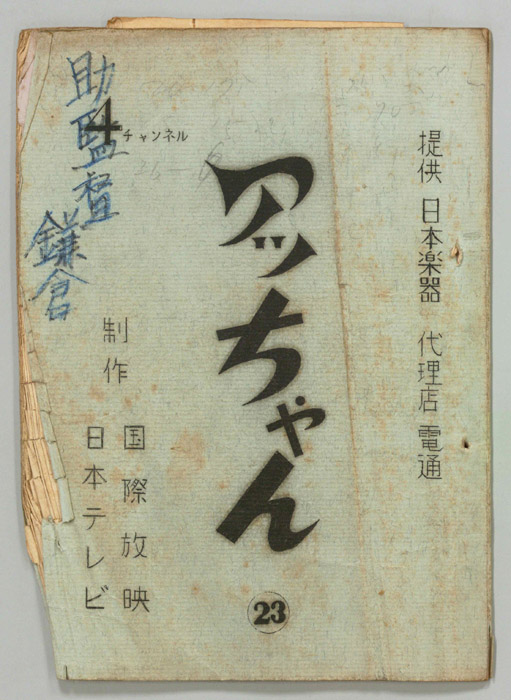 提供 日本楽器 代理店 電通
アッちゃん
㉓
4チャンネル
制作
国際放映
日本テレビ
助監督
鎌倉